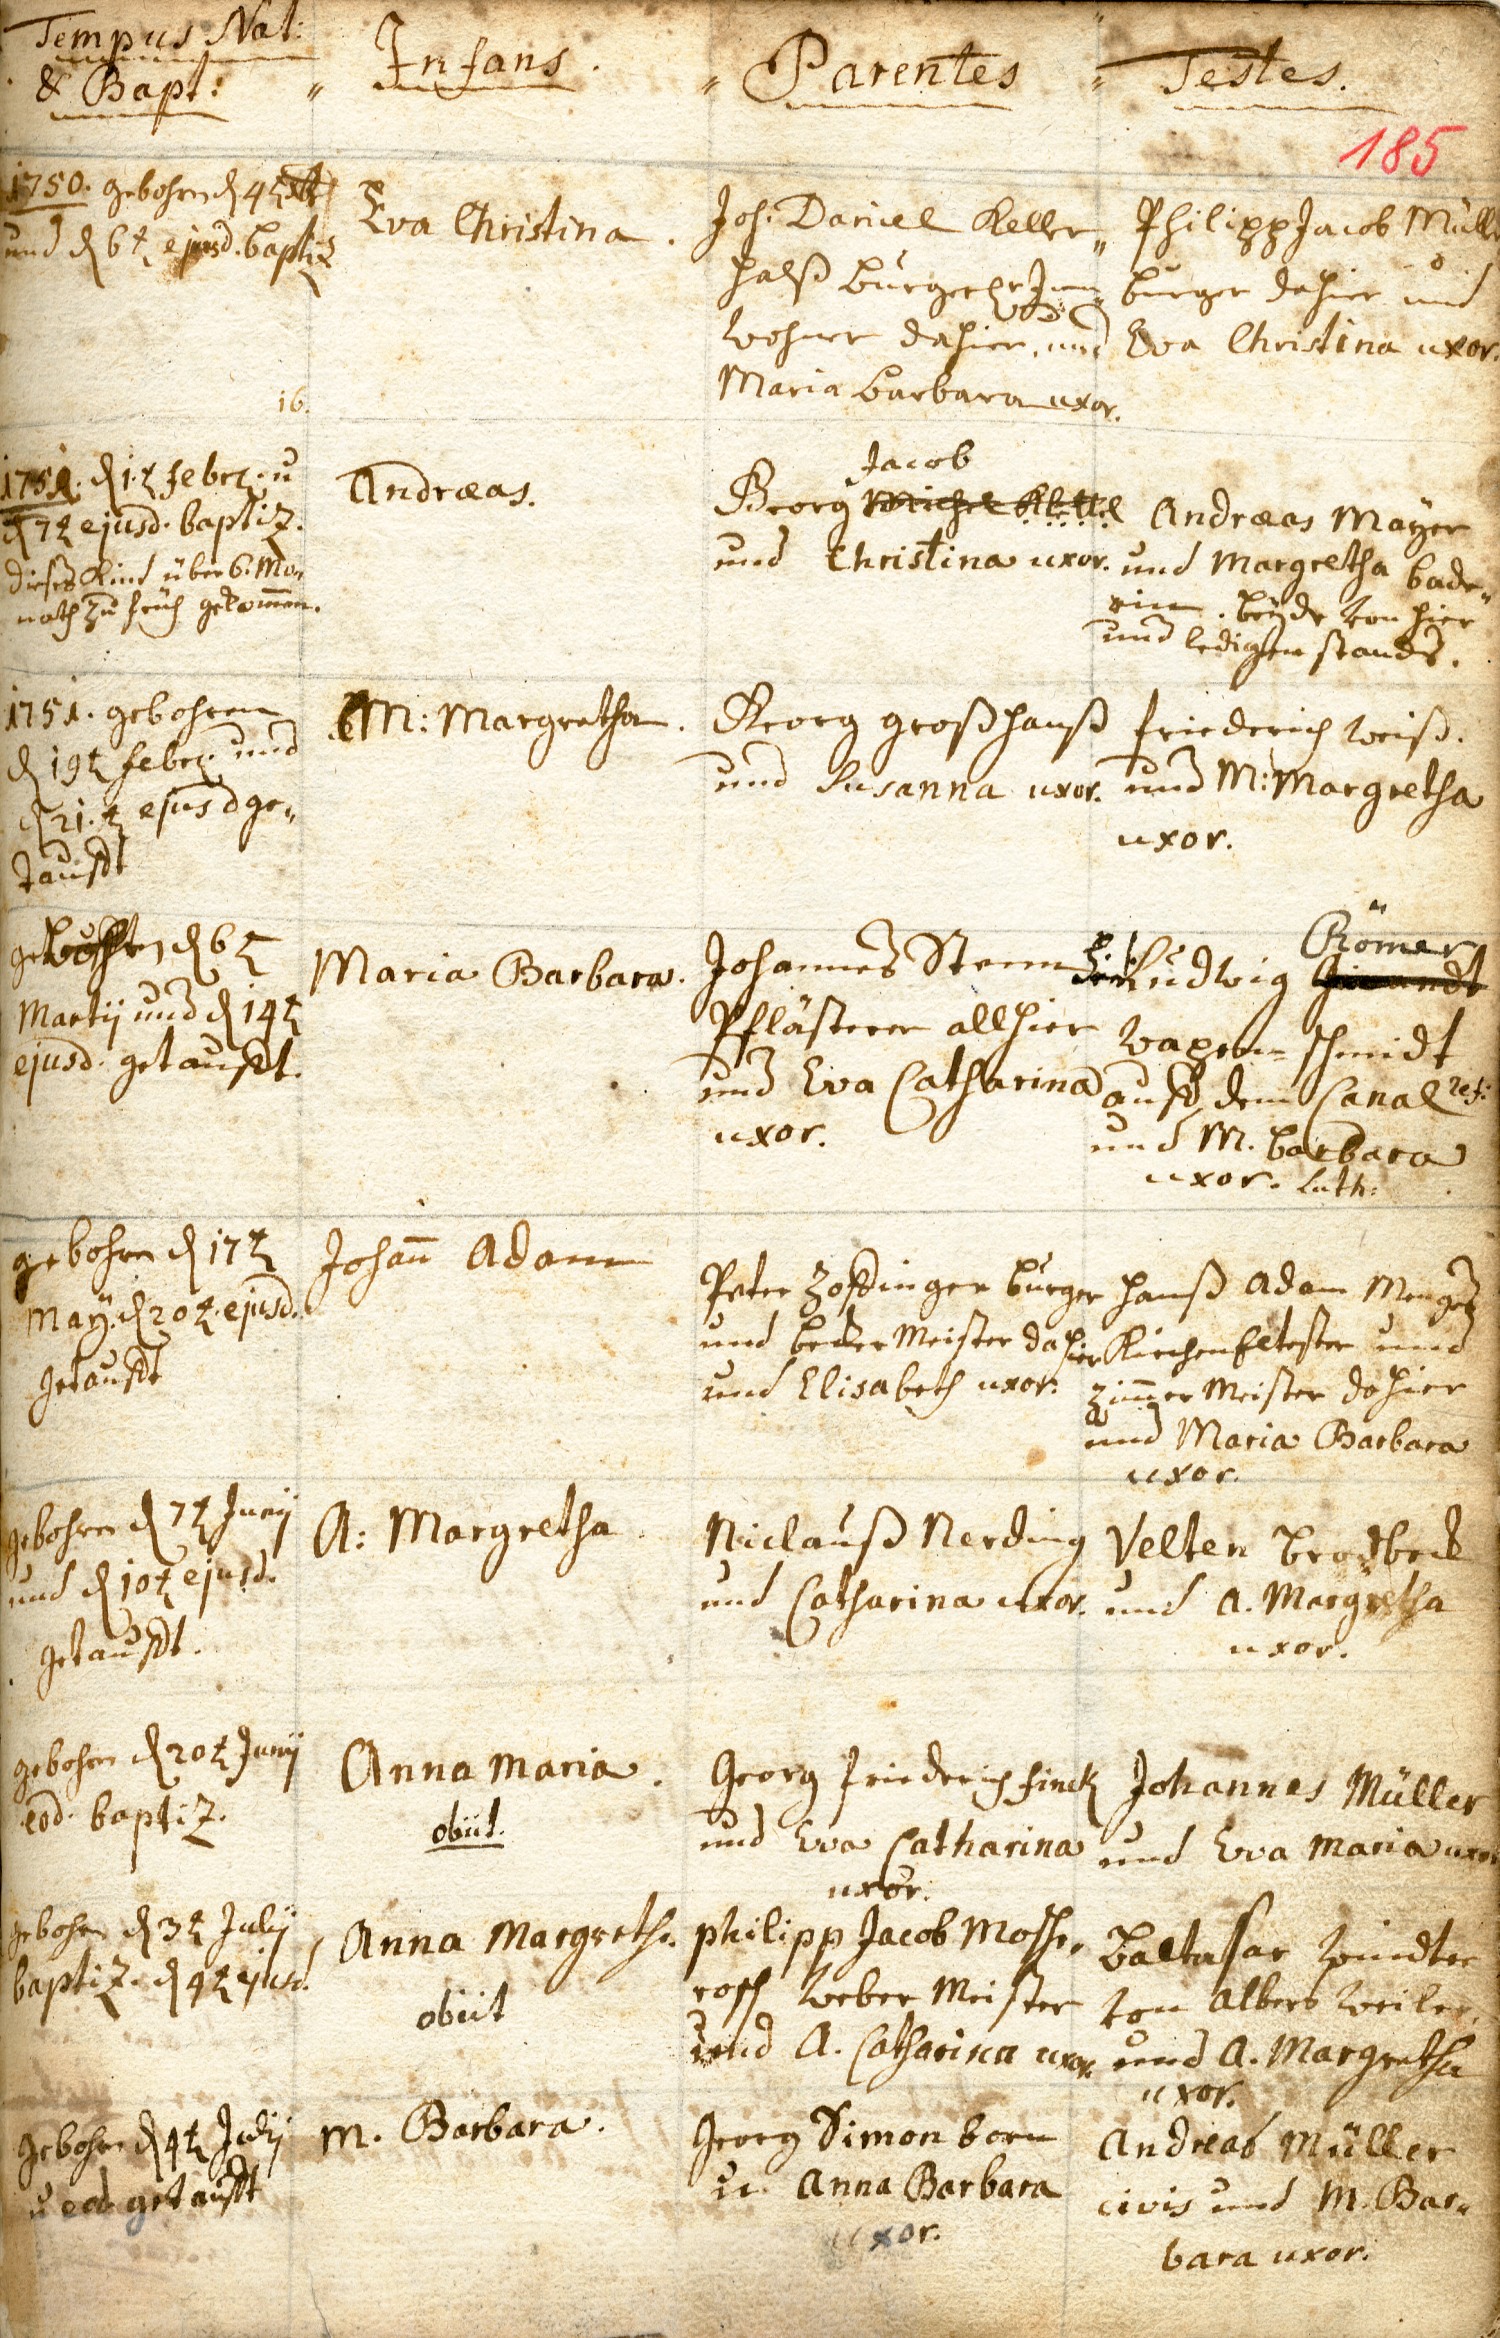 Tempus Nat:
& Bapt: "
Infans. "
Parentes "
Testes.
185
1750. gebohren d 4t xbr
und d 6t ejusd. baptiz
16.
Eva Christina.
Joh. Daniel Keller"
halß burger
wohner dahier, und
Maria Barbara uxor.
Philipp Jacob Müller
burger dahier und
Eva Christina uxor.
1751. d 1.t febr. u
d 7t ejusd. baptiz.
dieses Kind über 6. Mo"
nath zu früh gekommen.
Andræas.
Jacob
Georg Michel Klettel
und Christina uxor.
Andræas Mayer
und Margretha bade"
rin. beyde von hier
und ledigen stands.
1751. gebohren
d 19t febr. und
d 21.t ejusd ge"
taufft
M: Margretha.
Georg Großhanß
und Susanna uxor.
friederich weiß.
und M: Margretha
uxor.
d 6t
Martij und d 14t
ejusd. getaufft.
Maria Barbara.
Johannes Stem
Pflästerer allhier
und Eva Catharina
uxor.
Römer
Ludwig
wapen schmidt
auff dem Canal ref:
und M. barbara
uxor. Luth:
gebohren d 17t
May. d 20t. ejusd.
getaufft
Johañ Adam
Peter Zoffinger burger
und becker Meister dahier
und Elisabeth uxor.
Hanß Adam Menges
Kirchen Eltester und
zim̃er Meister dahier
und Maria Barbara
uxor.
gebohren d 7t Junij
und d 10t ejusd.
getaufft.
A: Margretha
Niclauß Nerding
und Catharina uxor.
Velten brodbeck
und A. Margretha
uxor.
gebohren d 20t Junij
eod. baptiz.
Anna Maria.
obiit.
Georg friederich finck
und Eva Catharina
uxor.
Johannes Müller
und Eva Maria uxor
gebohren d 3t Julij
baptiz. d 4t ejusd.
Anna Margreth.
obiit
philipp Jacob Mosche"
rosch weber Meister
und A. Catharina uxor.
Baltasar windter
von Albersweiler.
und A. Margretha
uxor.
gebohren d 4t Julij
u eod getaufft
M. Barbara.
Georg Simon born
u. Anna Barbara
uxor.
Andreas Müller
civis und M. Bar"
bara uxor.